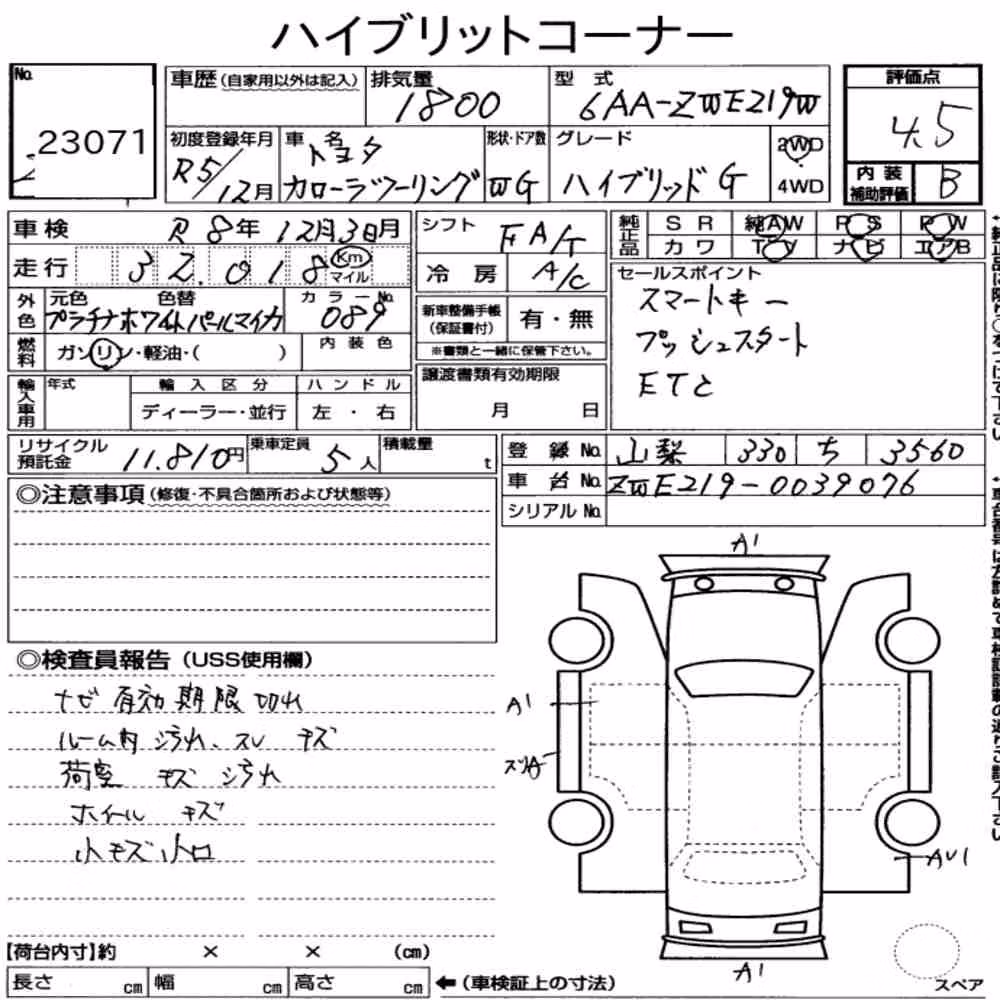 ハイブリットコーナー
No. 23071
車歴(自家用以外は記入)
排気量 1800
型式 6AA-ZWE219W
評価点 4.5
内装補助評価 B
初度登録年月 R5/12月
車名 トヨタ カローラツーリング
形状・ドア数 WG
グレード ハイブリッドG
2WD
4WD
車検 R8年12月3日月
走行 32.018 Km マイル
シフト FA/T
冷房 A/C
純正品 SR 純AW PS PW
カワ TV ナビ エアB
セールスポイント
スマートキー
プッシュスタート
ETC
外色 元色 色替 プラチナホワイトパールマイカ
カラーNo. 089
新車整備手帳(保証書付) 有・無
※書類と一緒に保管下さい。
燃料 ガソリン・軽油・( )
内装色
譲渡書類有効期限
月 日
輸入車用 年式 輸入区分 ハンドル
ディーラー・並行 左・右
リサイクル預託金 11.810円
乗車定員 5人
積載量 t
登録No. 山梨 330 ち 3560
車台No. ZWE219-0039076
シリアルNo.
◎注意事項(修復・不具合箇所および状態等)
◎検査員報告(USS使用欄)
ナビ有効期限切れ
ルーム内 汚れ、スレ キズ
荷室 キズ 汚れ
ホイール キズ
小キズ小凹
A1
A1
AU1
A1
スペア
【荷台内寸】約 × × (cm)
長さ cm 幅 cm 高さ cm ←(車検証上の寸法)